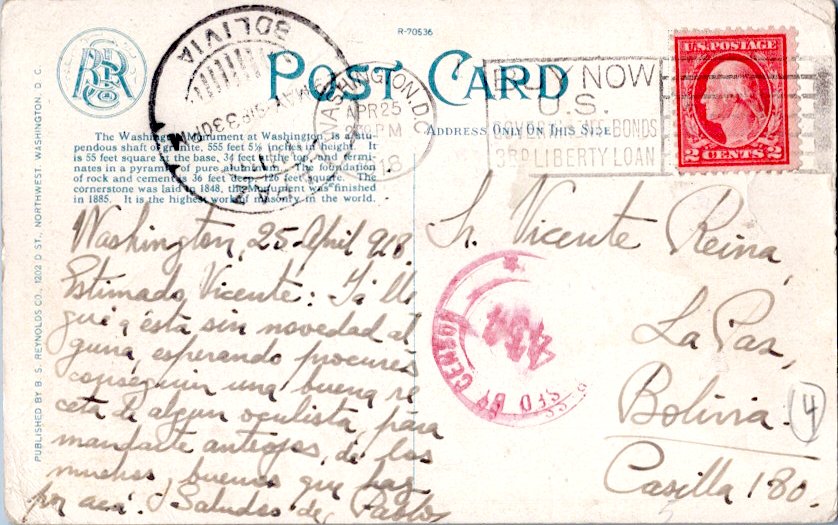 R-70536
POST CARD
ADDRESS ONLY ON THIS SIDE
U.S. POSTAGE
2 CENTS 2
BOLIVIA
MAY
WASHINGTON, D.C.
APR 25
PM
18
BUY NOW
U.S.
BONDS
3RD LIBERTY LOAN
The Washington Monument at Washington, is a stu-
pendous shaft of granite, 555 feet 5½ inches in height. It
is 55 feet square at the base, 34 feet at the top, and termi-
nates in a pyramid of pure aluminum. The foundation
of rock and cement is 36 feet deep, 126 feet square. The
cornerstone was laid in 1848, the Monument was finished
in 1885. It is the highest work of masonry in the world.
PUBLISHED BY B. S. REYNOLDS CO., 1202 D ST., NORTHWEST, WASHINGTON, D. C.
Washington, 25 April 918
Estimado Vicente: Ya lle
gué a ésta sin novedad al
guna, esperando
conseguir una buena re
ceta de algun oculista, para
mandarte anteojos, de los
muchos, buenos que hay
por acá. Saludos de Pablo
Sr. Vicente Reina,
La Paz,
Bolivia.
Casilla 180.
4
BY CEN